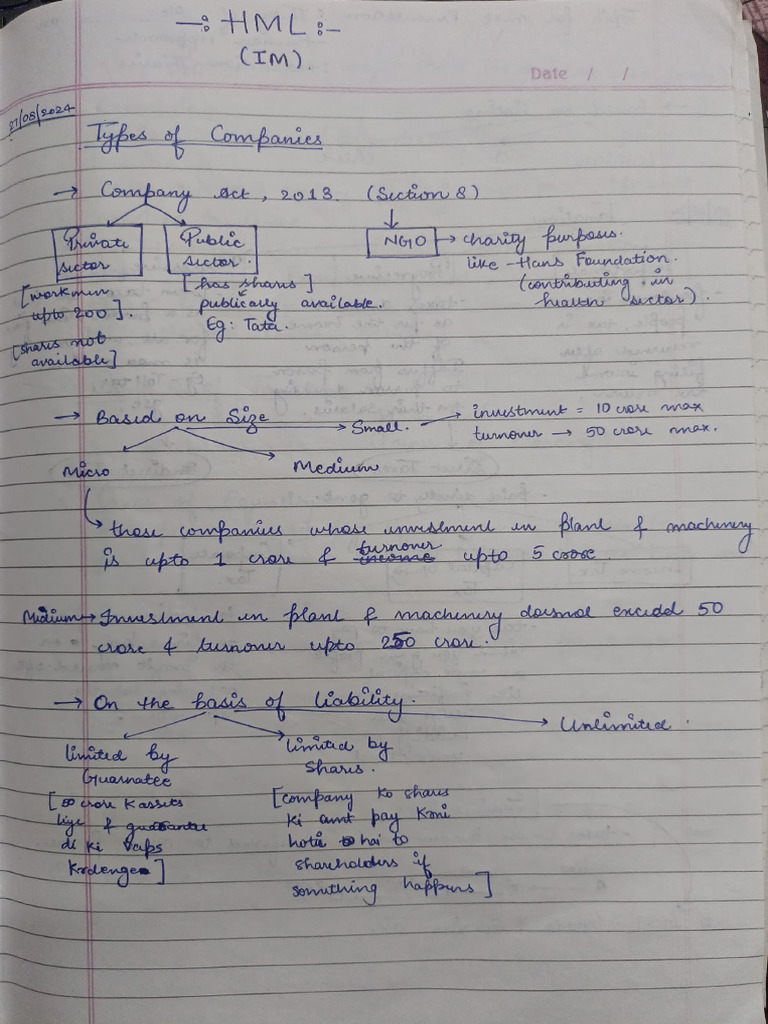 -: HML :-
(IM).
Date / /
27/08/2024
Types of Companies
→ Company Act, 2013. (Section 8)
Private sector
Public sector.
NGO → charity purposes.
like - Hans Foundation.
(contributing in
health sector).
[workmen
upto 200].
[shares not
available]
[has shares]
publically available.
Eg: Tata.
→ Based on Size
→ Small. → investment = 10 crore max
turnover → 50 crore max.
Micro
Medium
those companies whose investment in plant & machinery
is upto 1 crore & turnover upto 5 crore.
Medium → Investment in plant & machinery doesnot exceed 50
crore & turnover upto 250 crore.
→ On the basis of liability.
Limited by
Guarnatee
limited by
Shares.
Unlimited.
[50 crore K assets
liye &
di ki vaps
krdenge]
[company ko shares
ki amt pay krni
hoti hai to
shareholders if
something happens]